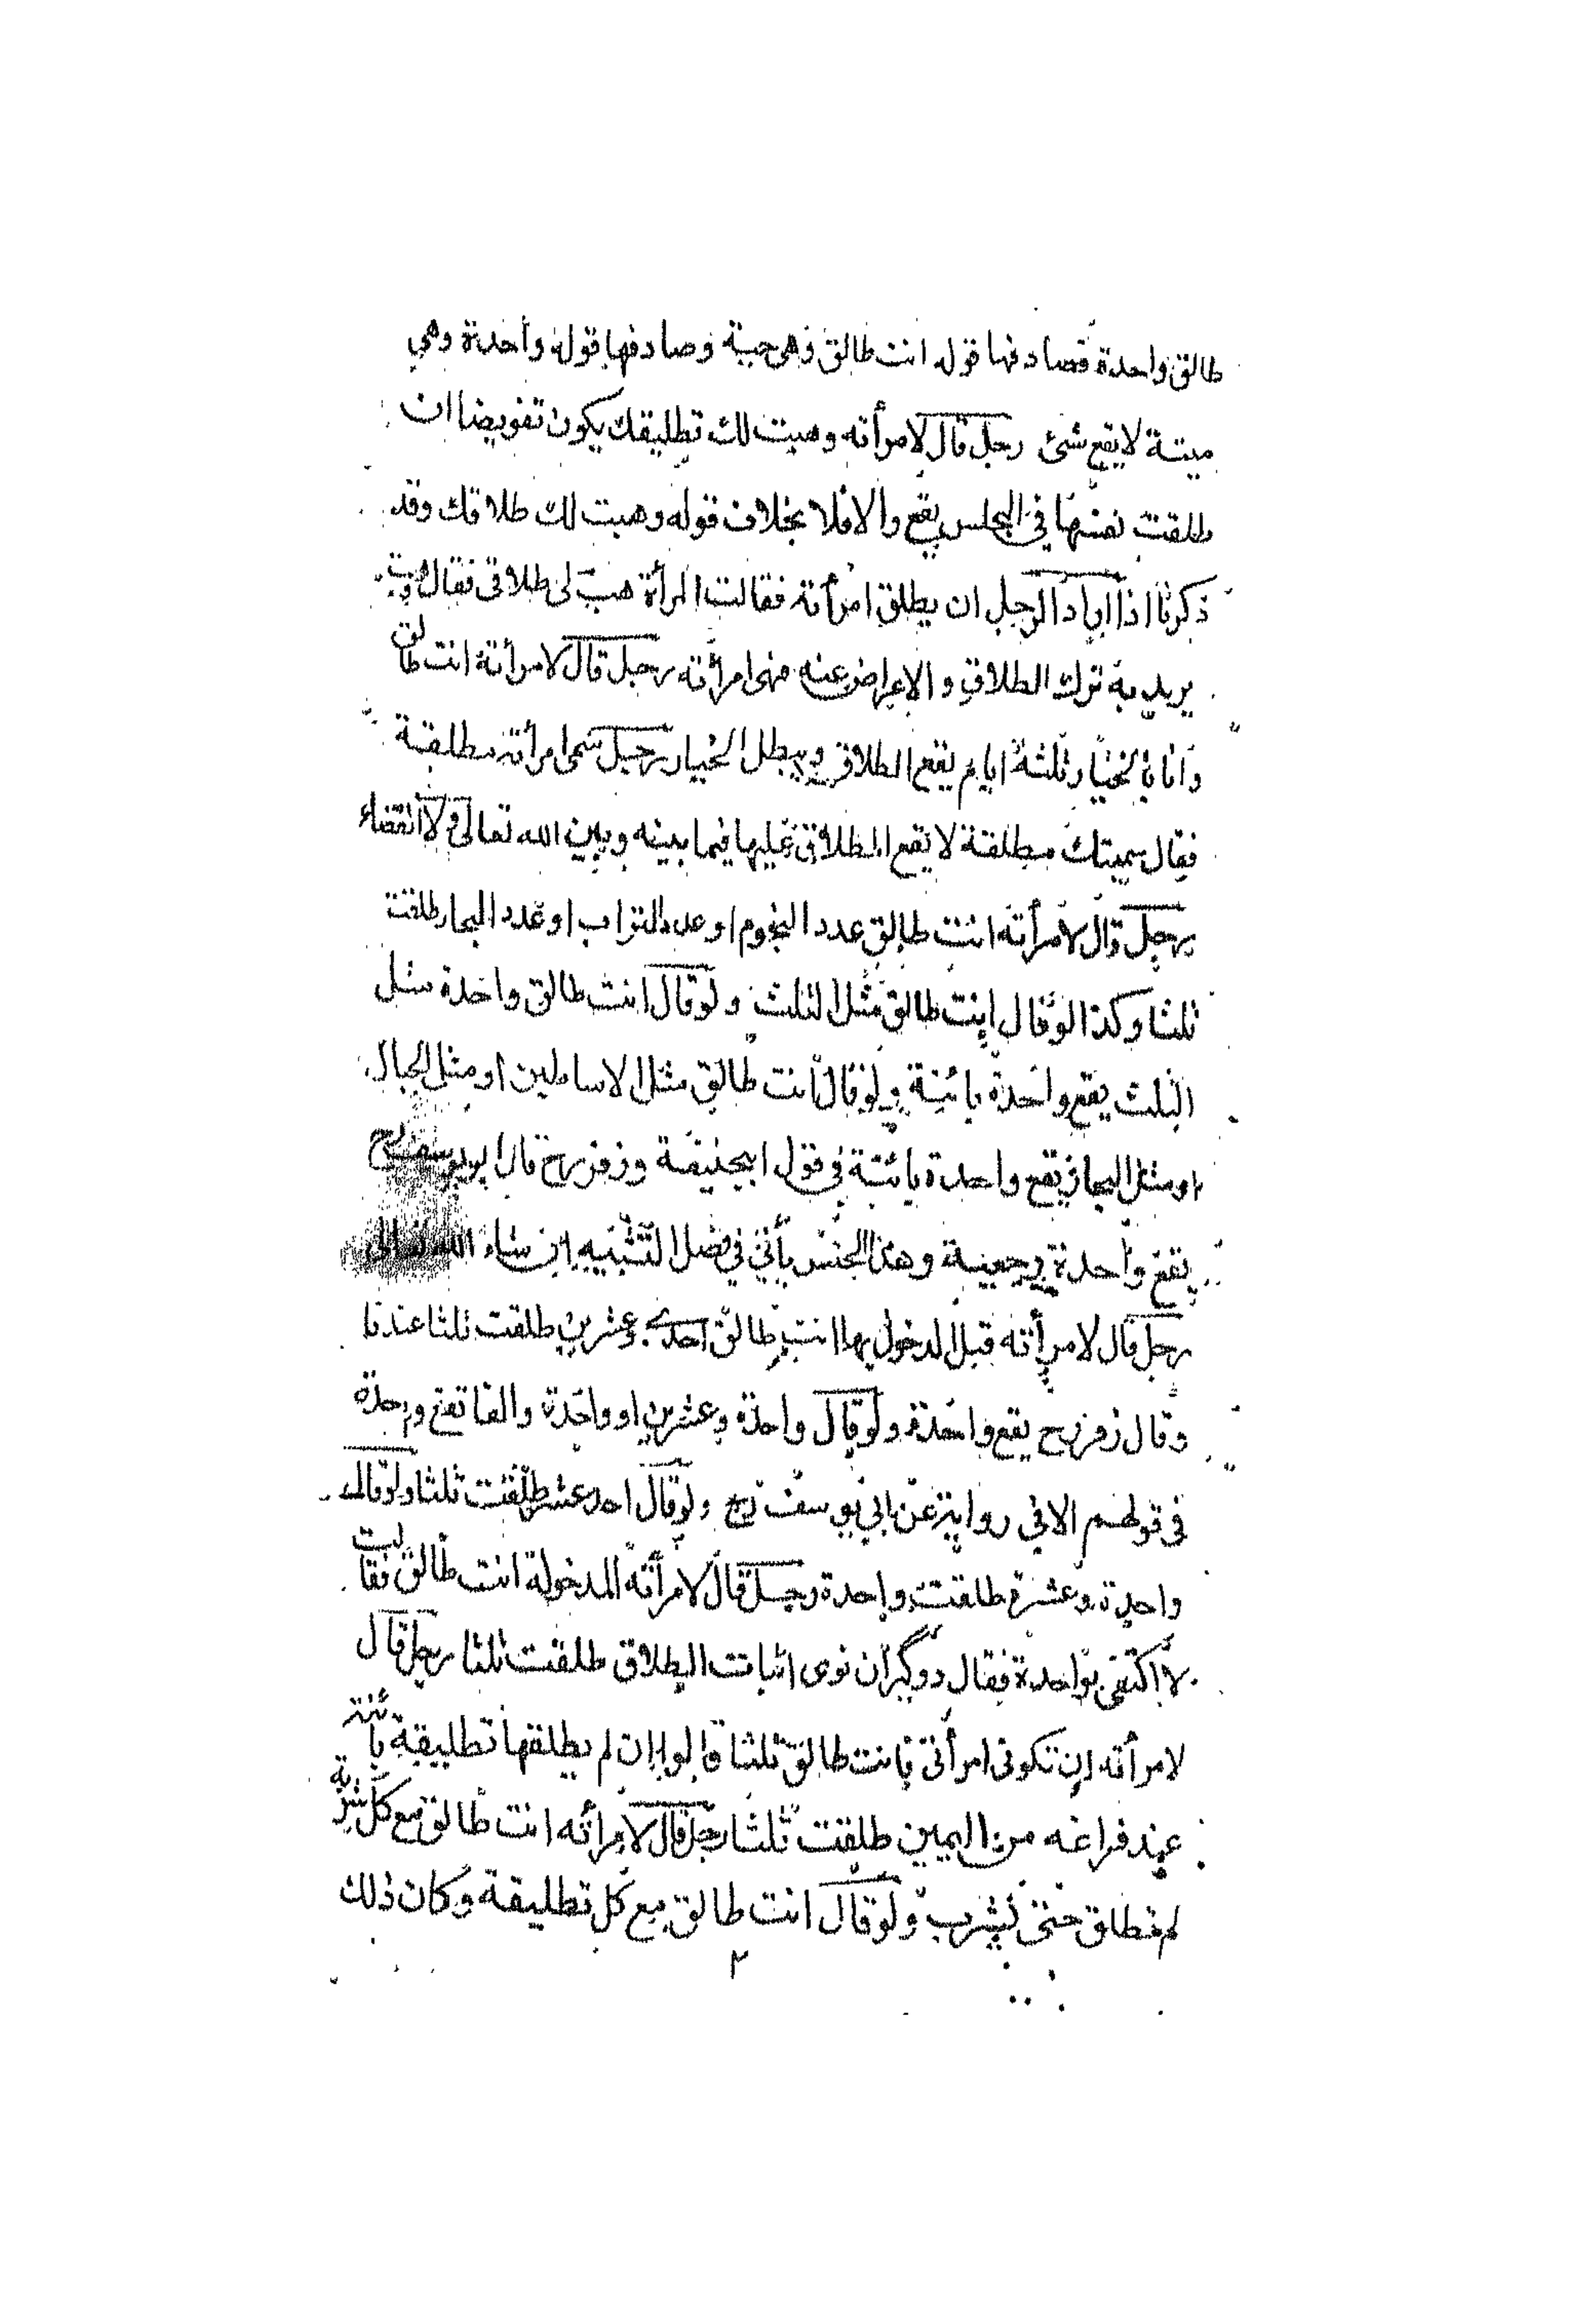 طالق واحدة فصادفها قوله انت طالق وهى حية وصادفها قوله واحدة وهي
ميتة لا يقع شئ رجل قال لامرأته وهبت لك تطليقك يكون تفويضا ان
طلقت نفسها في المجلس يقع والا فلا بخلاف قوله وهبت لك طلاقك وقد
ذكرنا اذا اراد الرجل ان يطلق امرأته فقالت المرأة هب لى طلاقى فقال وهبت
يريد به ترك الطلاق والاعراض عنه فهى امرأته رجل قال لامرأته انت طالق
وانا بالخيار ثلثة ايام يقع الطلاق ويبطل الخيار رجل سمى امرأته مطلقة
فقال سميتك مطلقة لا يقع الطلاق عليها فيما بينه وبين الله تعالى لا القضاء
رجل قال لامرأته انت طالق عدد النجوم او عدد التراب او عدد البحار طلقت
ثلثا وكذا لو قال انت طالق مثل الثلث ولو قال انت طالق واحدة مثل
الثلث يقع واحدة بائنة ولو قال انت طالق مثل الاساطين او مثل الجبال
او مثل البحار يقع واحدة بائنة في قول ابيحنيفة وزفر رح قال ابو يوسف رح
يقع واحدة رجعية وهذا الجنس يأتي في فصل التشبيه ان شاء الله تعالى
رجل قال لامرأته قبل الدخول بها انت طالق احدى وعشرين طلقت ثلثا عندنا
وقال زفر رح يقع واحدة ولو قال واحدة وعشرين او واحدة والفا تقع واحدة
فى قولهم الا في رواية عن ابي يوسف رح ولو قال احد عشر طلقت ثلثا ولو قال
واحدة وعشرة طلقت واحدة رجل قال لامرأته المدخولة انت طالق فقالت
لا اكتفى بواحدة فقال دو گير ان نوى اثبات الطلاق طلقت ثلثا رجل قال
لامرأته ان تكونى امرأتى فانت طالق ثلثا قالوا ان لم يطلقها تطليقة بائنة
عند فراغه من اليمين طلقت ثلثا رجل قال لامرأته انت طالق مع كل شربة
لم تطلق حتى تشرب ولو قال انت طالق مع كل تطليقة وكان ذلك
٢